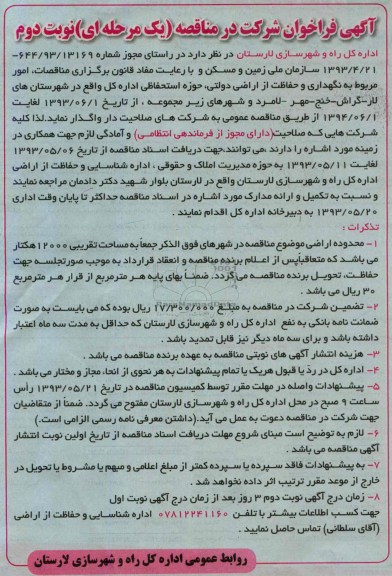 آگهی فراخوان شرکت در مناقصه (یک مرحله ای) نوبت دوم
اداره کل راه و شهرسازی لارستان در نظر دارد در راستای مجوز شماره ۶۴۴/۹۳/۱۳۱۶۹-
۱۳۹۳/۴/۲۱ سازمان ملی زمین و مسکن و با رعایت مفاد قانون برگزاری مناقصات، امور
مربوط به نگهداری و حفاظت از اراضی دولتی، حوزه استحفاظی اداره کل واقع در شهرستان های
لار-گراش-خنج-مهر - لامرد و شهرهای زیر مجموعه ، از تاریخ ۱۳۹۳/۰۶/۱ لغایت
۱۳۹۴/۰۶/۱ از طریق مناقصه عمومی به شرکت های صلاحیت دار واگذار نماید.لذا کلیه
شرکت هایی که صلاحیت(دارای مجوز از فرماندهی انتظامی) و آمادگی لازم جهت همکاری در
زمینه مورد اشاره را دارند ،می توانند،جهت دریافت اسناد مناقصه از تاریخ ۱۳۹۳/۰۵/۰۶
لغایت ۱۳۹۳/۰۵/۱۱ به حوزه مدیریت املاک و حقوقی ، اداره شناسایی و حفاظت از اراضی
اداره کل راه و شهرسازی لارستان واقع در لارستان بلوار شهید دکتر دادمان مراجعه نمایند
و نسبت به تکمیل و ارائه مدارک مورد اشاره در اسناد مناقصه حداکثر تا پایان وقت اداری
۱۳۹۳/۰۵/۲۰ به دبیرخانه اداره کل اقدام نمایند .
تذکرات :
۱- محدوده اراضی موضوع مناقصه در شهرهای فوق الذکر جمعاً به مساحت تقریبی ۱۲۰۰۰هکتار
می باشد که متعاقباًپس از اعلام برنده مناقصه و انعقاد قرارداد به موجب صورتجلسه جهت
حفاظت، تحویل برنده مناقصه می گردد. ضمناً بهای پایه هر مترمربع از قرار هر مترمربع
۳۰ ریال می باشد .
۲- تضمین شرکت در مناقصه به مبلغ ۱۷/۳۰۰/۰۰۰ ریال بوده که می بایست به صورت
ضمانت نامه بانکی به نفع اداره کل راه و شهرسازی لارستان که حداقل به مدت سه ماه اعتبار
داشته باشد و برای سه ماه دیگر نیز قابل تمدید باشد .
۳- هزینه انتشار آگهی های نوبتی مناقصه به عهده برنده مناقصه می باشد .
۴- اداره کل در ردّ یا قبول هریک یا تمام پیشنهادات به هر نحوی از انحاء مجاز و مختار می باشد .
۵- پیشنهادات واصله در مهلت مقرر توسط کمیسیون مناقصه در تاریخ ۱۳۹۳/۰۵/۲۱ رأس
ساعت ۹ صبح در محل اداره کل راه و شهرسازی لارستان مفتوح می گردد. ضمناً از متقاضیان
جهت شرکت در مناقصه دعوت به عمل می آید.(داشتن معرفی نامه رسمی الزامی است.)
۶- لازم به توضیح است مبنای شروع مهلت دریافت اسناد مناقصه از تاریخ اولین نوبت انتشار
آگهی مناقصه می باشد .
۷- به پیشنهادات فاقد سپرده یا سپرده کمتر از مبلغ اعلامی و مبهم یا مشروط یا تحویل در
خارج از موعد مقرر ترتیب اثر داده نخواهد شد .
۸- زمان درج آگهی نوبت دوم ۳ روز بعد از زمان درج آگهی نوبت اول
جهت کسب اطلاعات بیشتر با تلفن ۰۷۸۱۲۲۴۱۱۶۰ اداره شناسایی و حفاظت از اراضی
(آقای سلطانی) تماس حاصل نمایید .
روابط عمومی اداره کل راه و شهرسازی لارستان